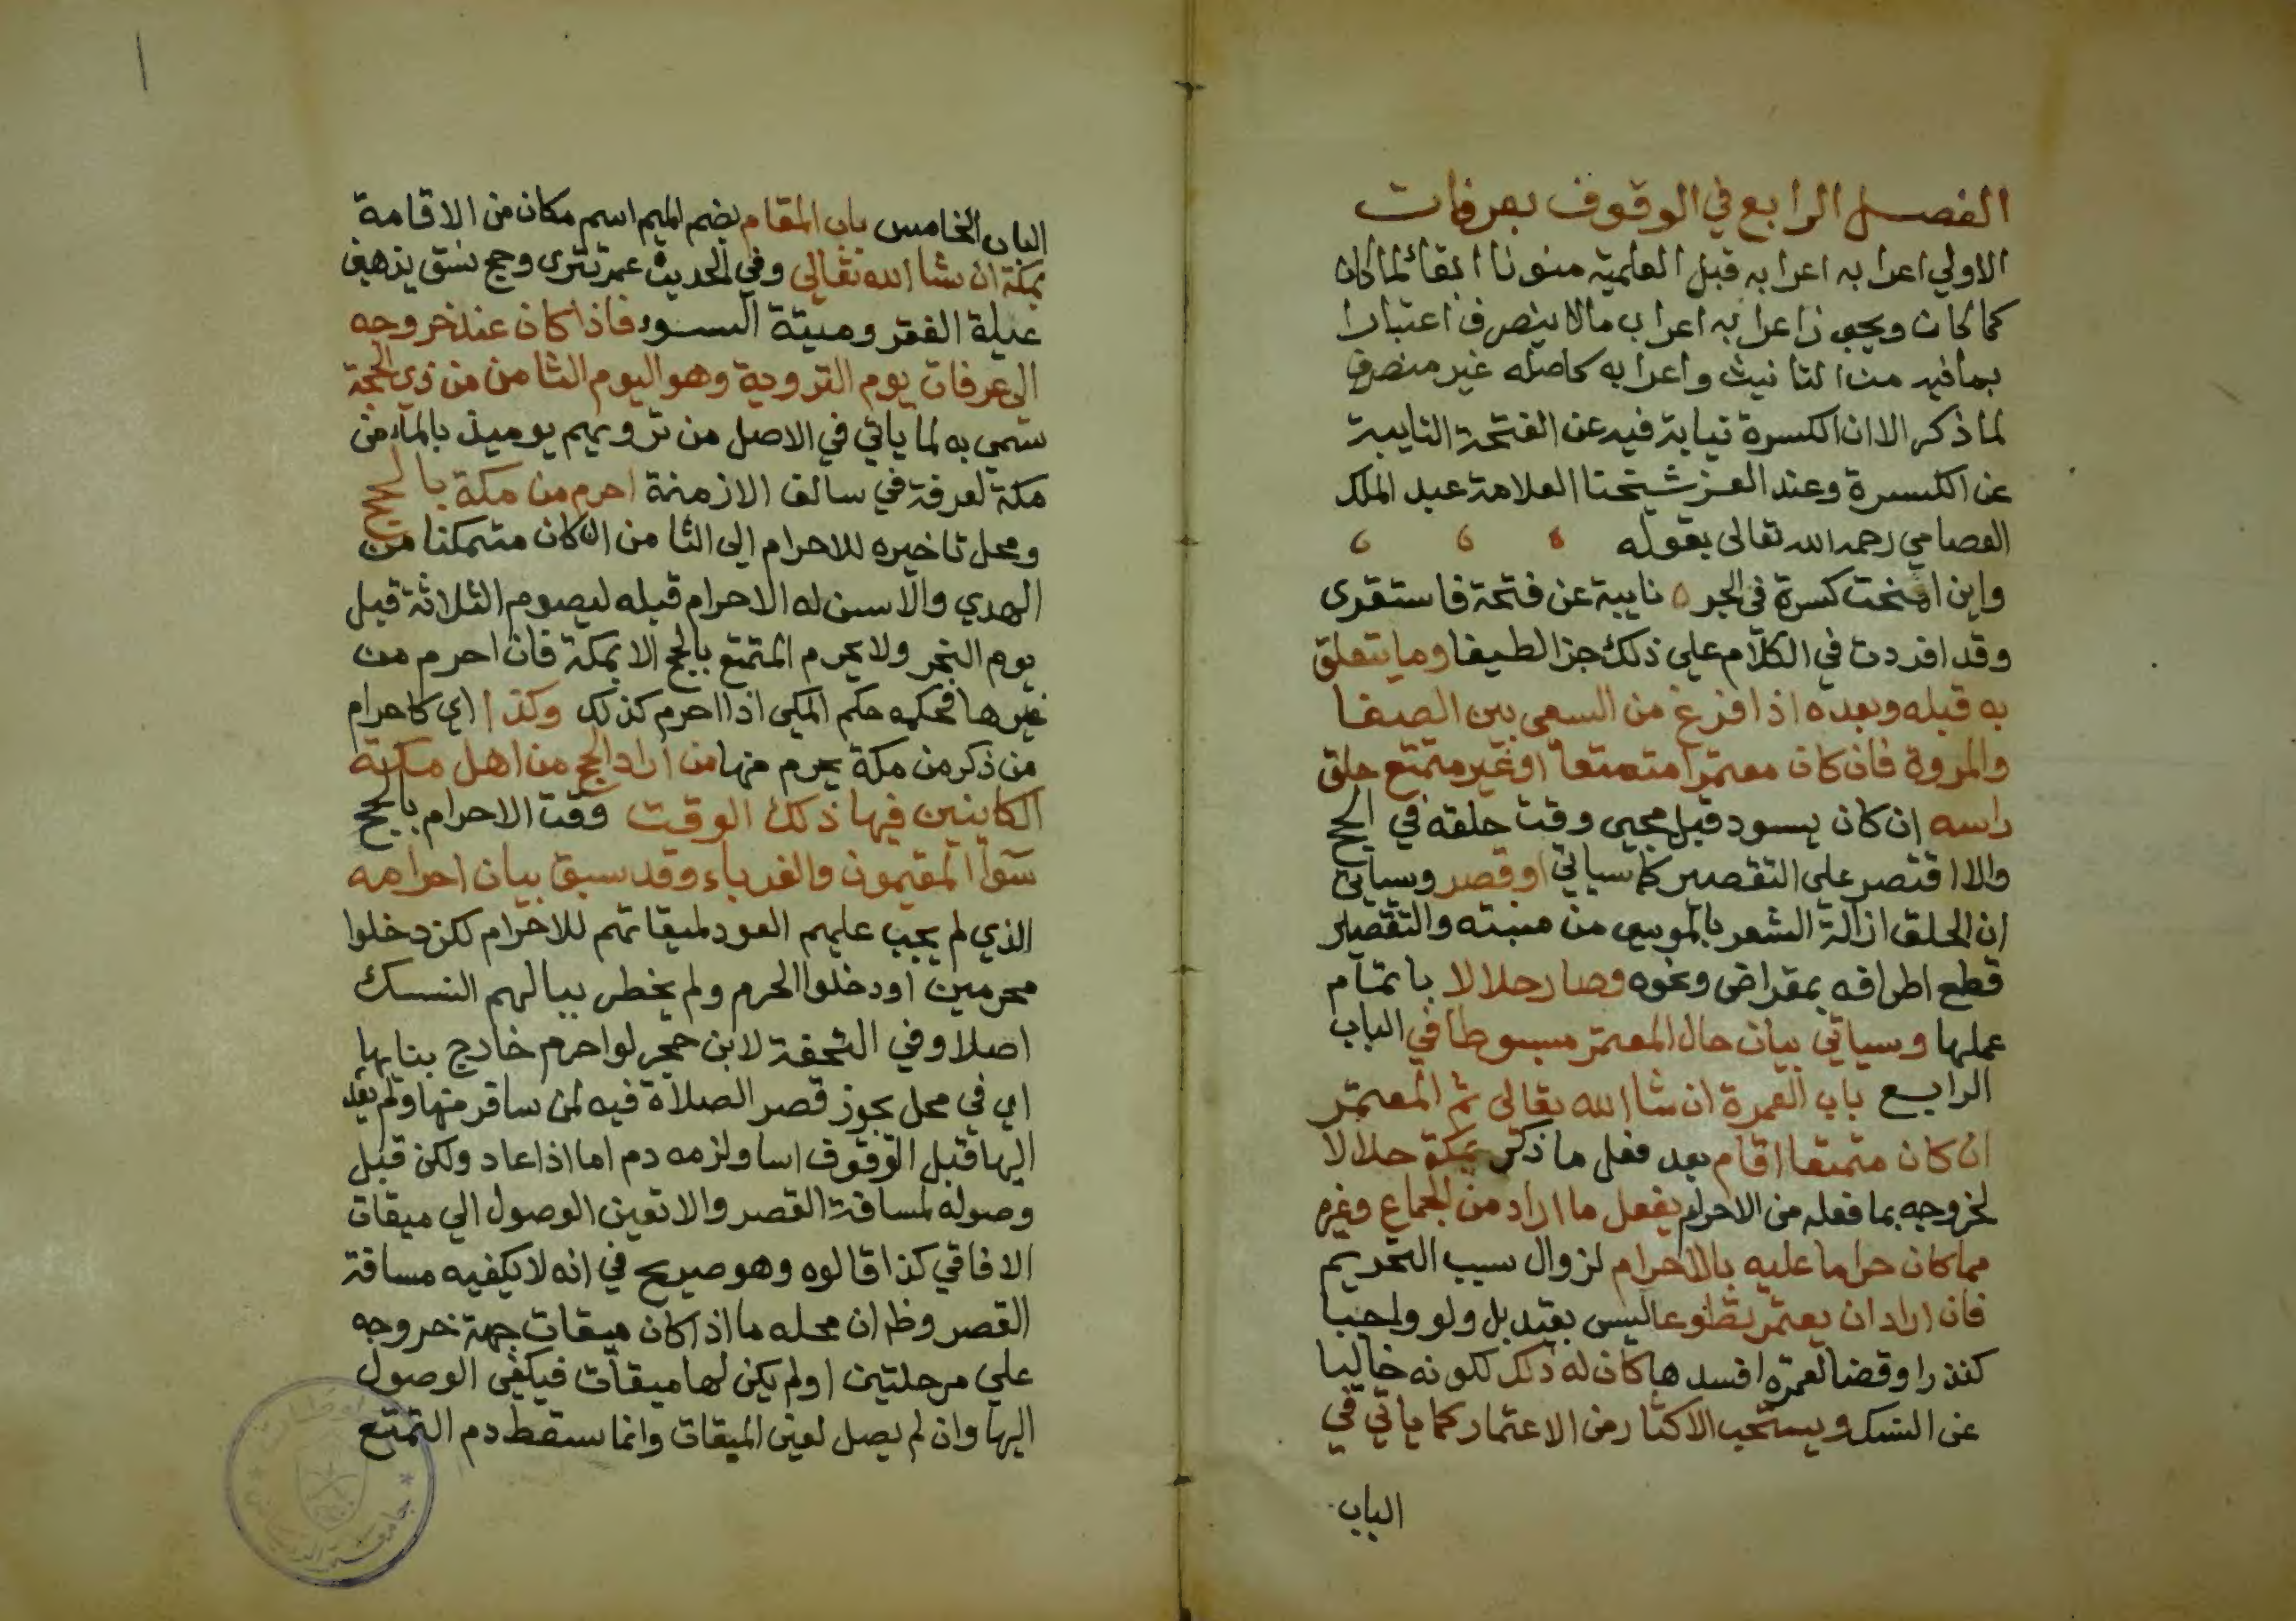 الفصل الرابع في الوقوف بعرفات
الاولي اعرابه اعرابه قبل العلمية منونا ابقائا لما كان
كما كان ويجوز اعرابه اعراب مالا ينصرف اعتبارا
بما فيه من التانيث واعرابه كاصله غير منصرف
لما ذكر الا ان الكسرة نيابة فيه عن الفتحة النايبة
عن الكسرة وعند العز شيخنا العلامة عبد الملك
العصامي رحمه الله تعالى بقوله
واين اضحت كسرة في الجر ٥ نايبة عن فتحة فاستقرى
وقد افردت في الكلام علي ذلك جزا لطيفا وما يتعلق
به قبله وبعده اذا فرغ من السعي بين الصفا
والمروة فان كان معتمرا متمتعا او غير متمتع حلق
راسه ان كان يسود قبل مجيى وقت حلقه في الحج
والا اقتصر علي التقصير كما سياتي او قصر وسياتي
ان الحلق ازالة الشعر بالموسي من منبته والتقصير
قطع اطرافه بمقراض ونحوه وصار حلالا باتمام
عملها وسياتي بيان حال المعتمر مبسوطا في الباب
الرابع باب العمرة ان شا الله تعالى ثم المعتمر
ان كان متمتعا اقام بعد فعل ما ذكر بمكة حلالا
لخروجه بما فعله من الاحرام يفعل ما اراد من الجماع وغيره
مما كان حراما عليه بالاحرام لزوال سبب التحريم
فان اراد ان يعتمر تطوعا ليس بقيد بل ولو واجبا
كنذر او قضا لعمرة افسدها كان له ذلك لكونه خاليا
عن النسك ويستحب الاكثار من الاعتمار كما ياتي في
الباب
الباب الخامس باب المقام بضم الميم اسم مكان من الاقامة
بمكة ان شا الله تعالى وفي الحديث عمر تترى وحج نسق يذهبن
عيلة الفقر وميتة السوء فاذا كان عند خروجه
الي عرفات يوم التروية وهو اليوم الثامن من ذي الحجة
سمي به لما ياتي في الاصل من ترويهم يوميذ بالماء من
مكة لعرفة في سالف الازمنة احرم من مكة بالحج
ومحل تاخيره للاحرام الى الثامن ان كان متمكنا من
الهدي والا سن له الاحرام قبله ليصوم الثلاثة قبل
يوم النحر ولا يحرم المتمتع بالحج الا بمكة فان احرم من
غيرها فحكمه حكم المكي اذا احرم كذلك وكذا اي كاحرام
من ذكر من مكة يحرم منها من اراد الحج من اهل مكة
الكاينين فيها ذلك الوقت وقت الاحرام بالحج
سوآ المقيمون والغرباء وقد سبق بيان احرامه
الذي لم يجب عليهم العود لميقاتهم للاحرام لكن دخلوا
محرمين او دخلوا الحرم ولم يخطر ببالهم النسك
اصلا وفي التحفة لابن حجر لو احرم خارج بنايها
اي في محل يجوز قصر الصلاة فيه لمن سافر منها ولم يعد
اليها قبل الوقوف اسا ولزمه دم اما اذا عاد ولكن قبل
وصوله لمسافة القصر والا تعين الوصول الي ميقات
الافاقي كذا قالوه وهو صريح في انه لا يكفيه مسافة
القصر وظ ان محله ما اذا كان ميقات جهة خروجه
علي مرحلتين او لم يكن لها ميقات فيكفي الوصول
اليها وان لم يصل لعين الميقات وانما سقط دم التمتع